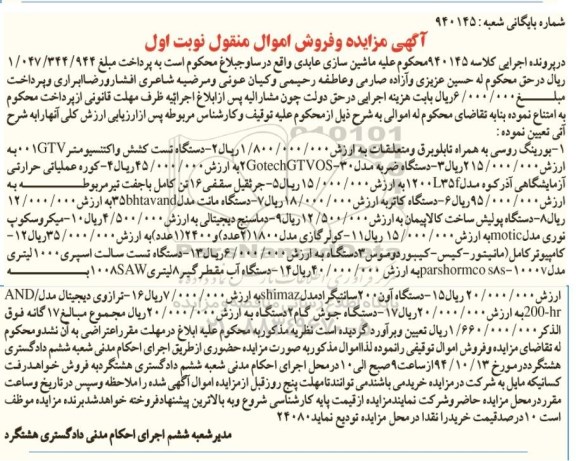 شماره بایگانی شعبه : ۹۴۰۱۴۵
آگهی مزایده وفروش اموال منقول نوبت اول
درپرونده اجرایی کلاسه ۹۴۰۱۴۵محکوم علیه ماشین سازی عابدی واقع درساوجبلاغ محکوم است به پرداخت مبلغ ۱/۰۴۷/۳۴۴/۹۴۴
ریال درحق محکوم له حسین عزیزی وآزاده صارمی وعاطفه رحیمی وکیان عونی ومرضیه شاعری افشارورضاابراری وپرداخت
مبلغ ۶/۰۰۰/۰۰۰ریال بابت هزینه اجرایی درحق دولت چون مشارالیه پس ازابلاغ اجرائیه ظرف مهلت قانونی ازپرداخت محکوم
به امتناع نموده بنابه تقاضای محکوم له اموالی به شرح ذیل ازمحکوم علیه توقیف وکارشناس مربوطه پس ازارزیابی ارزش کلی آنهارابه شرح
آتی تعیین نموده :
۱-یورینگ روسی به همراه تابلوبرق ومتعلقات به ارزش۱/۸۰۰/۰۰۰/۰۰۰ریال۲-دستگاه تست کشش واکتنسیومترGTV۰۰۱به
ارزش۲۱۵/۰۰۰/۰۰۰ریال۳-دستگاه ضربه مدل۳۰-GotechGTVOS۲به ارزش۴۵/۰۰۰/۰۰۰ریال۴-کوره عملیاتی حرارتی
آزمایشگاهی آذرکوه مدل1200L35fبه ارزش۱۵/۰۰۰/۰۰۰ریال۵-جرثقیل سقفی۱۶تن کامل باجفت تیرمربوطه به
ارزش۹۵/۰۰۰/۰۰۰ریال۶-دستگاه کاتربه ارزش۱۸/۰۰۰/۰۰۰ریال۷-دستگاه مانت مدلbhtavand۳۵به ارزش۱۲/۰۰۰/۰۰۰
ریال۸-دستگاه پولیش ساخت کالاپیمان به ارزش۱۲/۵۰۰/۰۰۰ریال۹-دماسنج دیجیتالی به ارزش۴/۵۰۰/۰۰۰ریال۱۰-میکروسکوپ
نوری مدلmoticبه ارزش۱۵/۰۰۰/۰۰۰ریال۱۱-کولرگازی مدل۱۸۰۰۰(۲عدد)و۲۴۰۰۰(۱عدد)به ارزش۳۵/۰۰۰/۰۰۰ریال۱۲-
کامپیوترکامل(مانیتور-کیس-کیبوردوموس۳دستگاه به ارزش۶/۰۰۰/۰۰۰ریال۱۳-دستگاه تست سالت اسپری۱۰۰۰لیتری
مدل۱۰۰۰v-parshormco s۸sبه ارزش۴۰/۰۰۰/۰۰۰ریال۱۴-دستگاه آب مقطرگیر۸لیتری۱۰۰۸SAWبه
ارزش۲۰/۰۰۰/۰۰۰ریال۱۵-دستگاه آون۲۰۰سانتیگرادمدلshimazبه ارزش۷/۰۰۰/۰۰۰ریال۱۶-ترازوی دیجیتال مدلAND/
200-hrبه ارزش۲۰/۰۰۰/۰۰۰ریال۱۷-دستگاه جوش گام۲دستگاه به ارزش۲۰/۰۰۰/۰۰۰ریال مجموع مبالغ۱۷گانه فوق
الذکر۱/۶۶۰/۰۰۰/۰۰۰ریال تعیین وبرآوردگردیده است نظریه مذکوربه محکوم علیه ابلاغ درمهلت مقرراعتراضی به آن نشدومحکوم
له تقاضای مزایده وفروش اموال توقیفی رانموده لذااموال مذکوربه صورت مزایده حضوری ازطریق اجرای احکام مدنی شعبه ششم دادگستری
هشتگرددرمورخ ۹۴/۱۰/۱۳ازساعت۹صبح الی۱۰درمحل اجرای احکام مدنی شعبه ششم دادگستری هشتگردبه فروش خواهدرفت
کسانیکه مایل به شرکت درمزایده خریدمی باشندمی توانندتامهلت پنج روزقبل ازمزایده اموال آگهی شده راملاحظه وسپس درتاریخ وساعت
مقرردرمحل مزایده حاضروشرکت نمایندمزایده ازقیمت پایه کارشناسی شروع وبه بالاترین پیشنهادفروخته خواهدشدبرنده مزایده موظف
است ۱۰درصدقیمت خریدرانقدا درمحل مزایده تودیع نماید۲۴۰۸۰
مدیرشعبه ششم اجرای احکام مدنی دادگستری هشتگرد